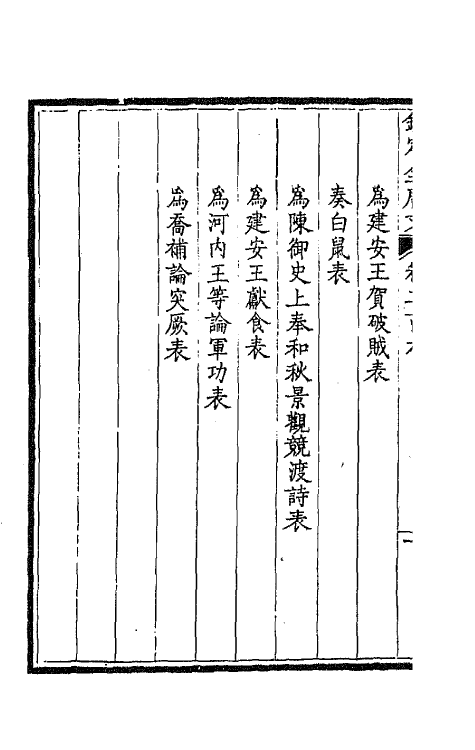 為建安王賀破賊表
奏白鼠表
為陳御史上奉和秋景觀競渡詩表
為建安王獻食表
為河內王等論軍功表
為喬補論突厥表